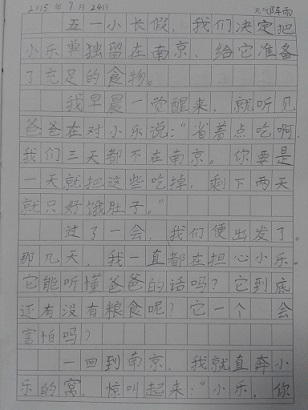 2015年9月24日 天气阵雨
五一小长假，我们决定把
小乐单独留在南京，给它准备
了充足的食物。
我早晨一觉醒来，就听见
爸爸在对小乐说：“省着点吃啊，
我们三天都不在南京。你要是
一天就把这些吃掉，剩下两天
就只好饿肚子。”
过了一会，我们便出发了。
那几天，我一直都在担心小乐。
它能听懂爸爸的话吗？它到底
还有没有粮食呢？它一个会
害怕吗？
一回到南京，我就直奔小
乐的窝，惊叫起来：“小乐，你